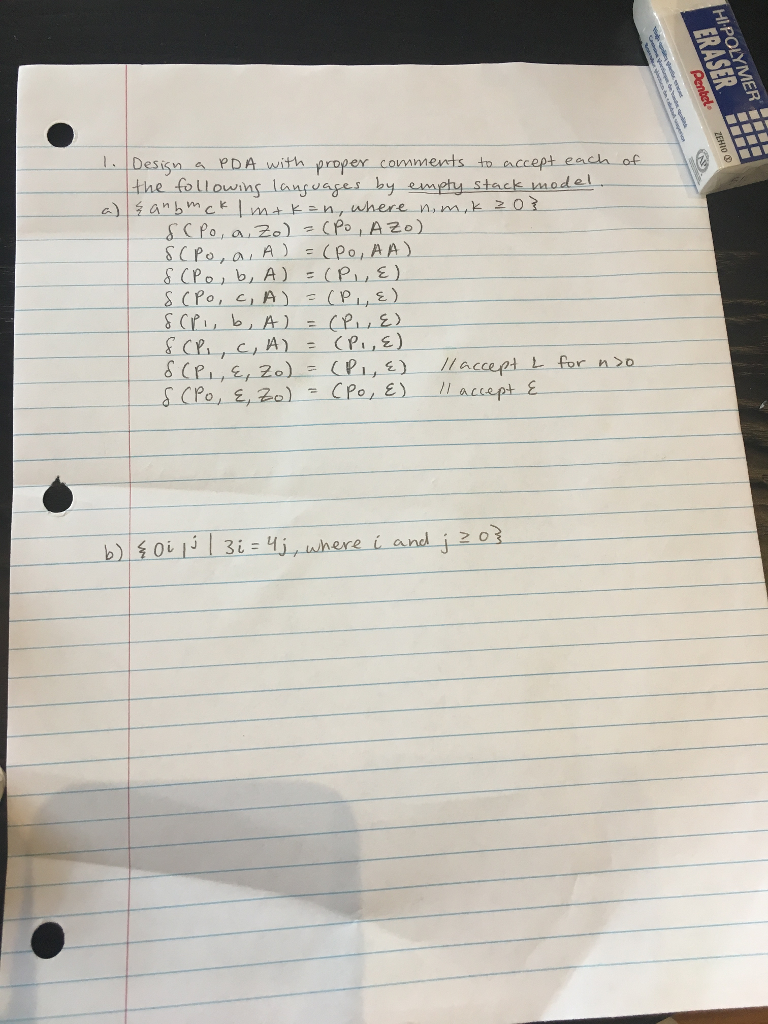 HI-POLYMER
ERASER
Pentel
ZEH10
1. Design a PDA with proper comments to accept each of
the following languages by empty stack model.
a) {aⁿbᵐcᵏ | m+k=n, where n,m,k ≥ 0}
δ(P₀, a, Z₀) = (P₀, AZ₀)
δ(P₀, a, A) = (P₀, AA)
δ(P₀, b, A) = (P₁, ε)
δ(P₀, c, A) = (P₁, ε)
δ(P₁, b, A) = (P₁, ε)
δ(P₁, c, A) = (P₁, ε)
δ(P₁, ε, Z₀) = (P₁, ε) //accept L for n>0
δ(P₀, ε, Z₀) = (P₀, ε) // accept ε
b) {0ⁱ1ʲ | 3i=4j, where i and j ≥ 0}